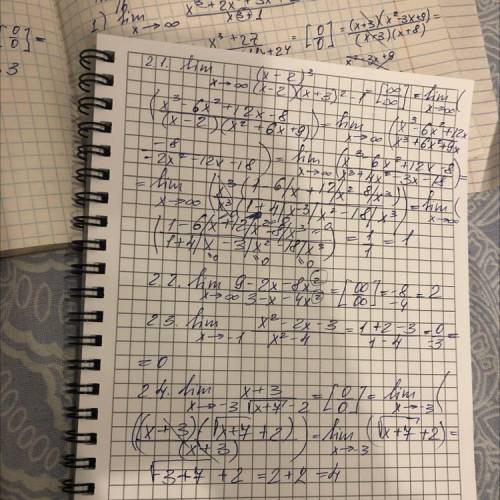 1) lim x→∞ x³+2x+3x... / x³+1
[0/0] =
x³+27 / ...+24 = [0/0] = (x+3)(x²-3x+9) / (x+3)(x+8) =
x²-3x+9
3
2.1. lim x→∞ (x-2)³ / (x-2)(x+3)² - 1 = [∞/∞] = lim x→∞ (
(x³-6x²+12x-8 / (x-2)(x²+6x+9)) = lim x→∞ (x³-6x²+12x / x³+6x²+9x
-8 / -2x²-12x-18) = lim x→∞ (x³-6x²+12x-8 / x³+4x²-3x-18) =
= lim x→∞ (x³(1-6/x+12/x²-8/x³) / x³(1+4/x-3/x²-18/x³)) = lim x→∞ (
(1-6/x+12/x²-8/x³ / 1+4/x-3/x²-18/x³) = 1/1 = 1
2.2. lim x→∞ 9-2x-8x² / 3-x-4x² = [∞/∞] = -8/-4 = 2
2.3. lim x→-1 x²-2x-3 / x²-4 = 1+2-3 / 1-4 = 0/-3 =
= 0
2.4. lim x→-3 x+3 / √x+7 - 2 = [0/0] = lim x→-3 (
((x+3)(√x+7 + 2) / (x+3)) = lim x→-3 (√x+7 + 2) =
√-3+7 + 2 = 2+2 = 4